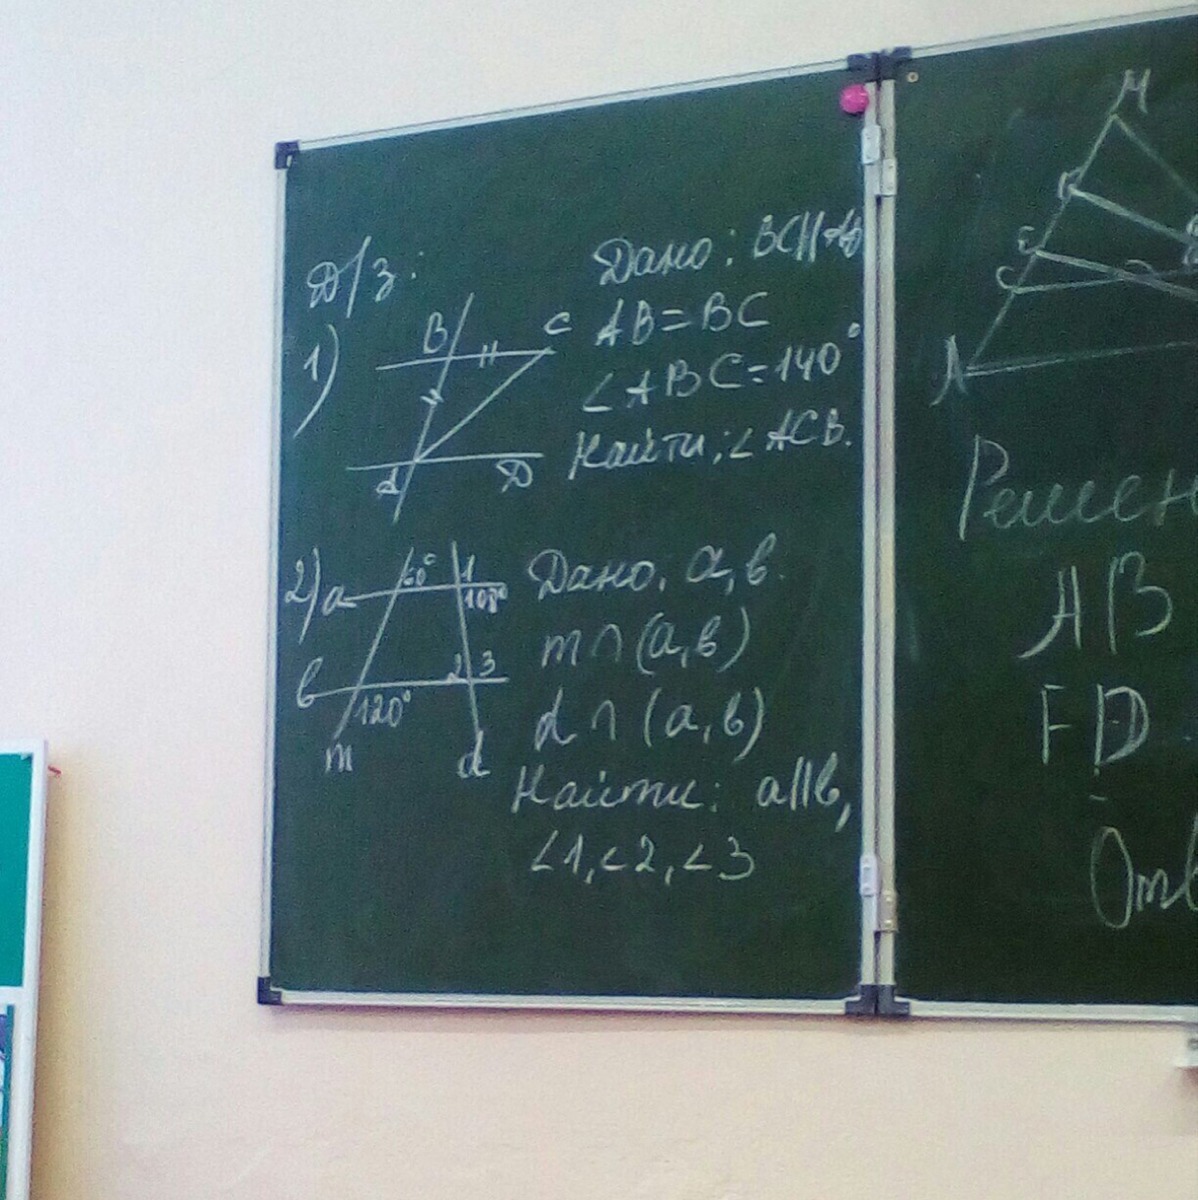 Д/з:
1)
B
C
A
D
Дано: BC||AD
AB=BC
∠ABC=140°
Найти: ∠ACB.
2)
a
60°
1
108°
b
2
3
120°
m
d
Дано: a, b.
m∩(a,b)
d∩(a,b)
Найти: a||b,
∠1, ∠2, ∠3
M
E
C
A
Решен
AB
FD
Отв